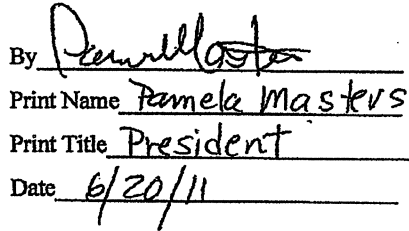 By
Print Name Pamela Masters
Print Title President
Date 6/20/11